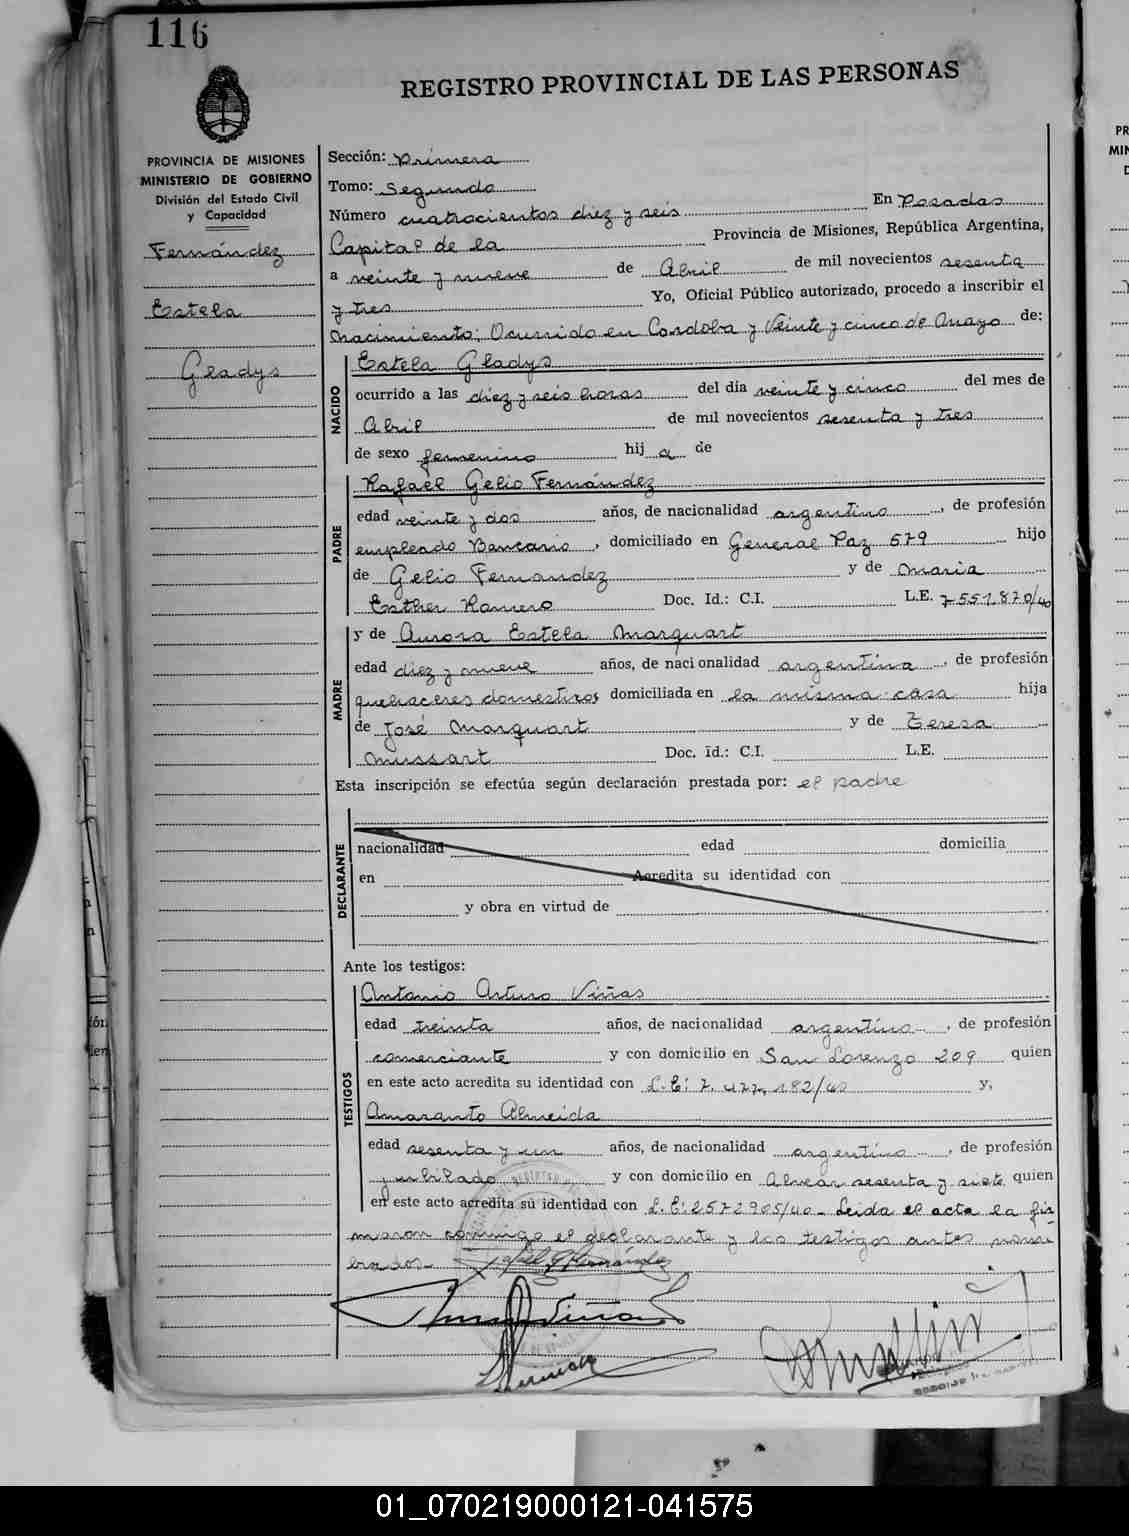 116
REGISTRO PROVINCIAL DE LAS PERSONAS
PROVINCIA DE MISIONES
MINISTERIO DE GOBIERNO
División del Estado Civil
y Capacidad
Fernández
Estela
Gladys
Sección: Primera
Tomo: Segundo
Número cuatrocientos diez y seis En Posadas
Capital de la Provincia de Misiones, República Argentina,
a veinte y nueve de Abril de mil novecientos sesenta
y tres Yo, Oficial Público autorizado, procedo a inscribir el
nacimiento; Ocurrido en Cordoba y Veinte y cinco de Mayo de:
NACIDO
Estela Gladys
ocurrido a las diez y seis horas del día veinte y cinco del mes de
Abril de mil novecientos sesenta y tres
de sexo femenino hij a de
PADRE
Rafael Gelio Fernández
edad veinte y dos años, de nacionalidad argentino, de profesión
empleado Bancario, domiciliado en General Paz 579 hijo
de Gelio Fernandez y de Maria
Esther Romero Doc. Id.: C.I. L.E. 7551.870/40
MADRE
y de Aurora Estela Marquart
edad diez y nueve años, de nacionalidad argentina, de profesión
quehaceres domesticos domiciliada en la misma casa hija
de José Marquart y de Teresa
Mussart Doc. Id.: C.I. L.E.
Esta inscripción se efectúa según declaración prestada por: el padre
DECLARANTE
nacionalidad edad domicilia
en Acredita su identidad con
y obra en virtud de
Ante los testigos:
TESTIGOS
Antonio Arturo Viñas
edad treinta años, de nacionalidad argentino, de profesión
comerciante y con domicilio en San Lorenzo 209 quien
en este acto acredita su identidad con L.E: 7.477.182/40 y,
Amaranto Almeida
edad sesenta y un años, de nacionalidad argentino, de profesión
jubilado y con domicilio en Alvear sesenta y siete quien
en este acto acredita su identidad con L.E: 2572905/40_ Leida el acta la fir
maron conmigo el declarante y los testigos antes nom
brados_
01_070219000121-041575